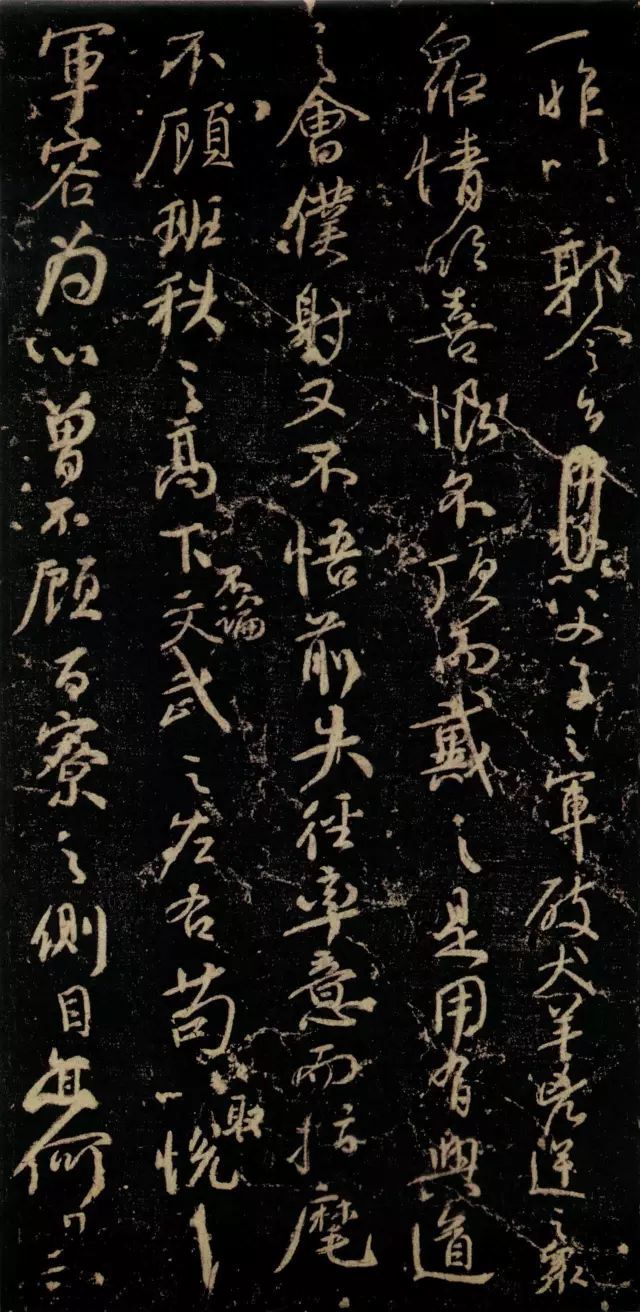 一昨以郭令公父子之軍破犬羊㐫逆之衆
衆情欣喜恨不頂而戴之是用有興道
之會僕射又不悟前失徑率意而指麾
不顧班秩之高下不論文武之左右苟以取悅
軍容為心曾不顧百寮之側目亦何